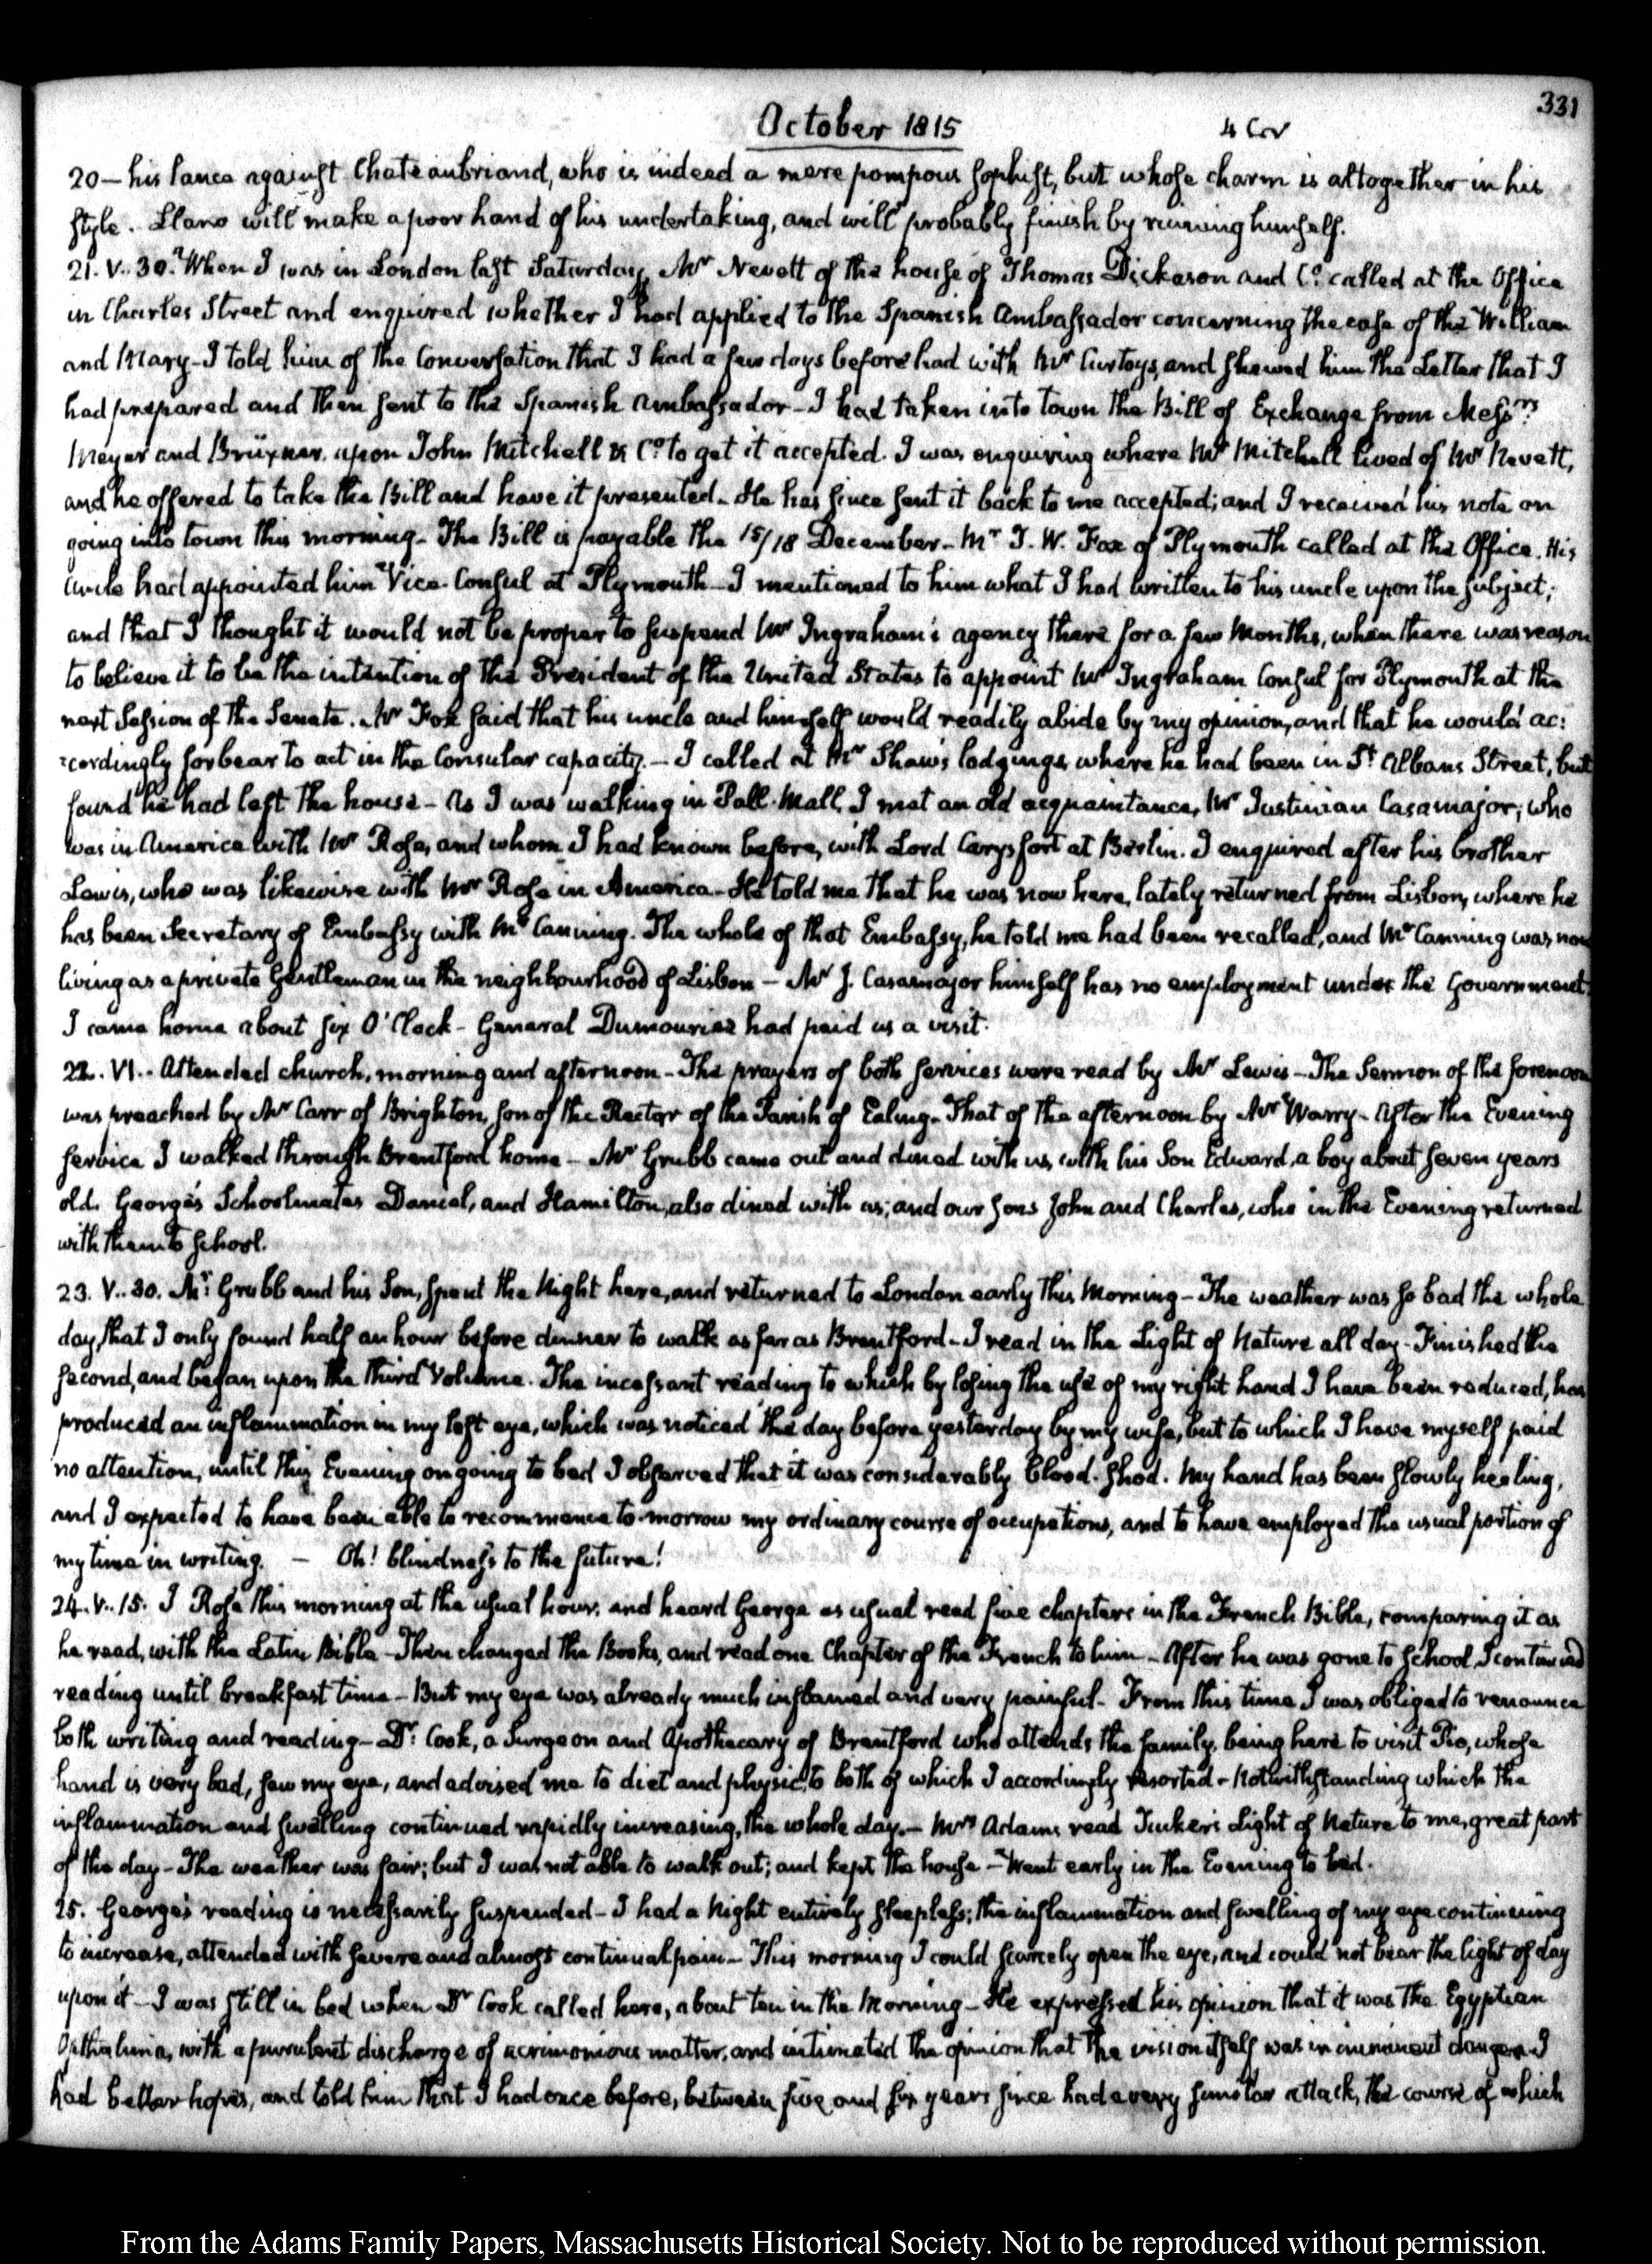 331
October 1815
4 Cov
20 — his lance against Chateaubriand, who is indeed a mere pompous sophist, but whose charm is altogether in his
style. Llano will make a poor hand of his undertaking, and will probably finish by ruining himself.
21. V.. 30. When I was in London last Saturday, Mr Nevett of the house of Thomas Dickason and Co. called at the Office
in Charles Street and enquired whether I had applied to the Spanish Ambassador concerning the case of the William
and Mary - I told him of the Conversation that I had a few days before had with Mr Curtoys, and shewed him the Letter that I
had prepared and then sent to the Spanish Ambassador - I had taken into town the Bill of Exchange from Messrs
Meyer and Brüxner, upon John Mitchell & Co. to get it accepted. I was enquiring where Mr Mitchell lived of Mr Nevett,
and he offered to take the Bill and have it presented - He has since sent it back to me accepted; and I received his note on
going into town this morning - The Bill is payable the 15/18 December - Mr T. W. Fox of Plymouth called at the Office. His
Uncle had appointed him Vice-Consul at Plymouth - I mentioned to him what I had written to his uncle upon the subject;
and that I thought it would not be proper to suspend Mr Ingraham's agency there for a few Months, when there was reason
to believe it to be the intention of the President of the United States to appoint Mr Ingraham Consul for Plymouth at the
next Session of the Senate. Mr Fox said that his uncle and himself would readily abide by my opinion, and that he would ac:
:cordingly forbear to act in the Consular capacity. - I called at Mr Shaw's lodgings where he had been in St. Albans Street, but
found he had left the house - As I was walking in Pall-Mall, I met an old acquaintance, Mr Justinian Casamajor; who
was in America with Mr Rose, and whom I had known before, with Lord Carysfort at Berlin. I enquired after his brother
Lewis, who was likewise with Mr Rose in America - He told me that he was now here, lately returned from Lisbon, where he
has been Secretary of Embassy with Mr Canning. The whole of that Embassy, he told me had been recalled, and Mr Canning was now
living as a private Gentleman in the neighbourhood of Lisbon - Mr J. Casamajor himself has no employment under the Government.
I came home about six O'Clock - General Dumouriez had paid us a visit.
22. VI.. Attended church, morning and afternoon - The prayers of both services were read by Mr Lewis - The Sermon of the forenoon
was preached by Mr Carr of Brighton, son of the Rector of the Parish of Ealing - That of the afternoon by Mr Warry - After the Evening
service I walked through Brentford home - Mr Grubb came out and dined with us, with his Son Edward, a boy about seven years
old. George's Schoolmates Daniel, and Hamilton, also dined with us; and our sons John and Charles, who in the Evening returned
with them to school.
23. V.. 30. Mr. Grubb and his Son, spent the Night here, and returned to London early this Morning - The weather was so bad the whole
day, that I only found half an hour before dinner to walk as far as Brentford - I read in the Light of Nature all day - Finished the
second, and began upon the third Volume. The incessant reading to which by losing the use of my right hand I have been reduced, has
produced an inflammation in my left eye, which was noticed the day before yesterday by my wife, but to which I have myself paid
no attention, until this Evening on going to bed I observed that it was considerably blood-shod. My hand has been slowly healing,
and I expected to have been able to recommence to-morrow my ordinary course of occupations, and to have employed the usual portion of
my time in writing. — Oh! blindness to the future!
24. V.. 15. I Rose this morning at the usual hour; and heard George as usual read five chapters in the French Bible, comparing it as
he read, with the Latin Bible - Then changed the Books, and read one Chapter of the French to him - After he was gone to School, I continued
reading until breakfast time - But my eye was already much inflamed and very painful - From this time I was obliged to renounce
both writing and reading - Dr: Cook, a Surgeon and Apothecary of Brentford who attends the family, being here to visit Pio, whose
hand is very bad, saw my eye, and advised me to diet and physic, to both of which I accordingly resorted - Notwithstanding which the
inflammation and swelling continued rapidly increasing, the whole day. - Mrs Adams read Tucker's Light of Nature to me, great part
of the day - The weather was fair; but I was not able to walk out; and kept the house - Went early in the Evening to bed.
25. George's reading is necessarily suspended - I had a Night entirely sleepless; the inflammation and swelling of my eye continuing
to increase, attended with severe and almost continual pain - This morning I could scarcely open the eye, and could not bear the light of day
upon it - I was still in bed when Dr Cook called here, about ten in the Morning - He expressed his opinion that it was the Egyptian
Opthalmia, with a purulent discharge of acrimonious matter, and intimated the opinion that the vision itself was in imminent danger - I
had better hopes, and told him that I had once before, between five and six years since had a very similar attack, the course of which
From the Adams Family Papers, Massachusetts Historical Society. Not to be reproduced without permission.